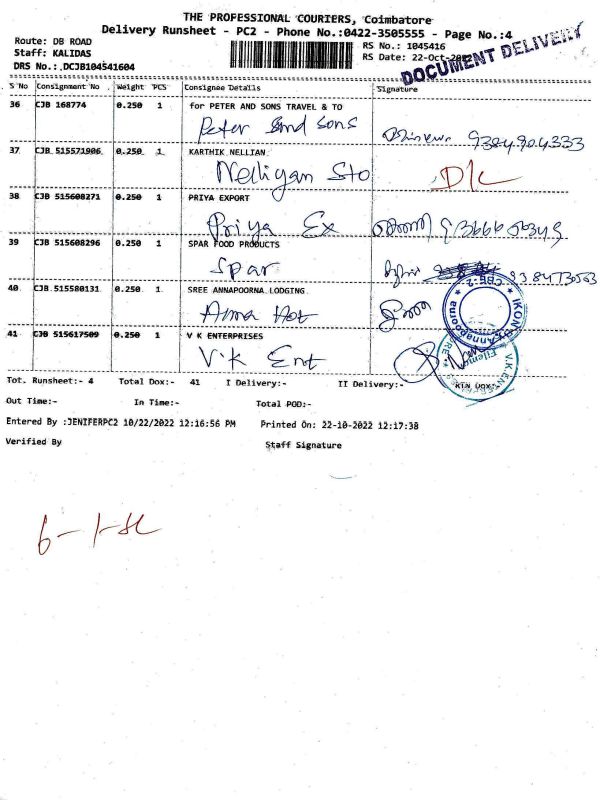 THE PROFESSIONAL COURIERS, Coimbatore
Delivery Runsheet - PC2 - Phone No.:0422-3505555 - Page No.:4
Route: DB ROAD
RS No.: 1045416
Staff: KALIDAS
RS Date: 22-Oct-2022
DRS No.: DCJB104541604
DOCUMENT DELIVERY
S No Consignment No Weight PCS Consignee Details Signature
36 CJB 168774 0.250 1 for PETER AND SONS TRAVEL & TO
Peter And Sons
9384904333
37 CJB 515571906 0.250 1 KARTHIK NELLIAN
Nelliyan Sto D/L
38 CJB 515608271 0.250 1 PRIYA EXPORT
Priya Ex
39 CJB 515608296 0.250 1 SPAR FOOD PRODUCTS
Spar
40 CJB 515580131 0.250 1 SREE ANNAPOORNA LODGING
Anna Hot
IKON Annapoorna CBE-2
41 CJB 515617509 0.250 1 V K ENTERPRISES
V.K Ent
V.K.ENTERPRISES
Tot. Runsheet:- 4 Total Dox:- 41 I Delivery:- II Delivery:- RTN Dox:-
Out Time:- In Time:- Total POD:-
Entered By :JENIFERPC2 10/22/2022 12:16:56 PM Printed On: 22-10-2022 12:17:38
Verified By Staff Signature